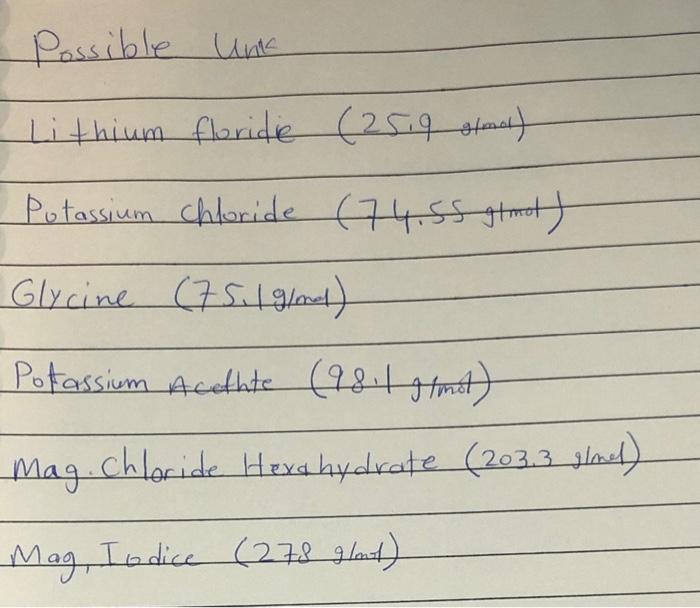 Possible Unk
Lithium floride (25.9 g/mol)
Potassium chloride (74.55 g/mol)
Glycine (75.1 g/mol)
Potassium Acethte (98.1 g/mol)
Mag. Chloride Hexahydrate (203.3 g/mol)
Mag, Iodice (278 g/mol)